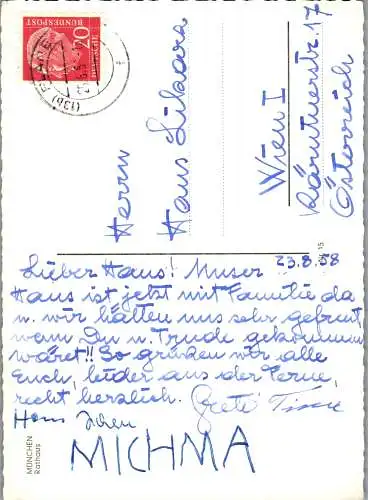 20
DEUTSCHE
BUNDESPOST
(13b)
Herrn
Hans Likara
Wien I
Kärntnerstr. 17
Österreich
23.8.58
Lieber Hans! Unser
Hans ist jetzt mit Familie da
u. wir hätten uns sehr gefreut
wenn Du u. Trude gekommen
wäret!! So grüßen wir alle
Euch, leider aus der Ferne,
recht herzlich. Grete
Hans
MICHMA
MÜNCHEN
Rathaus